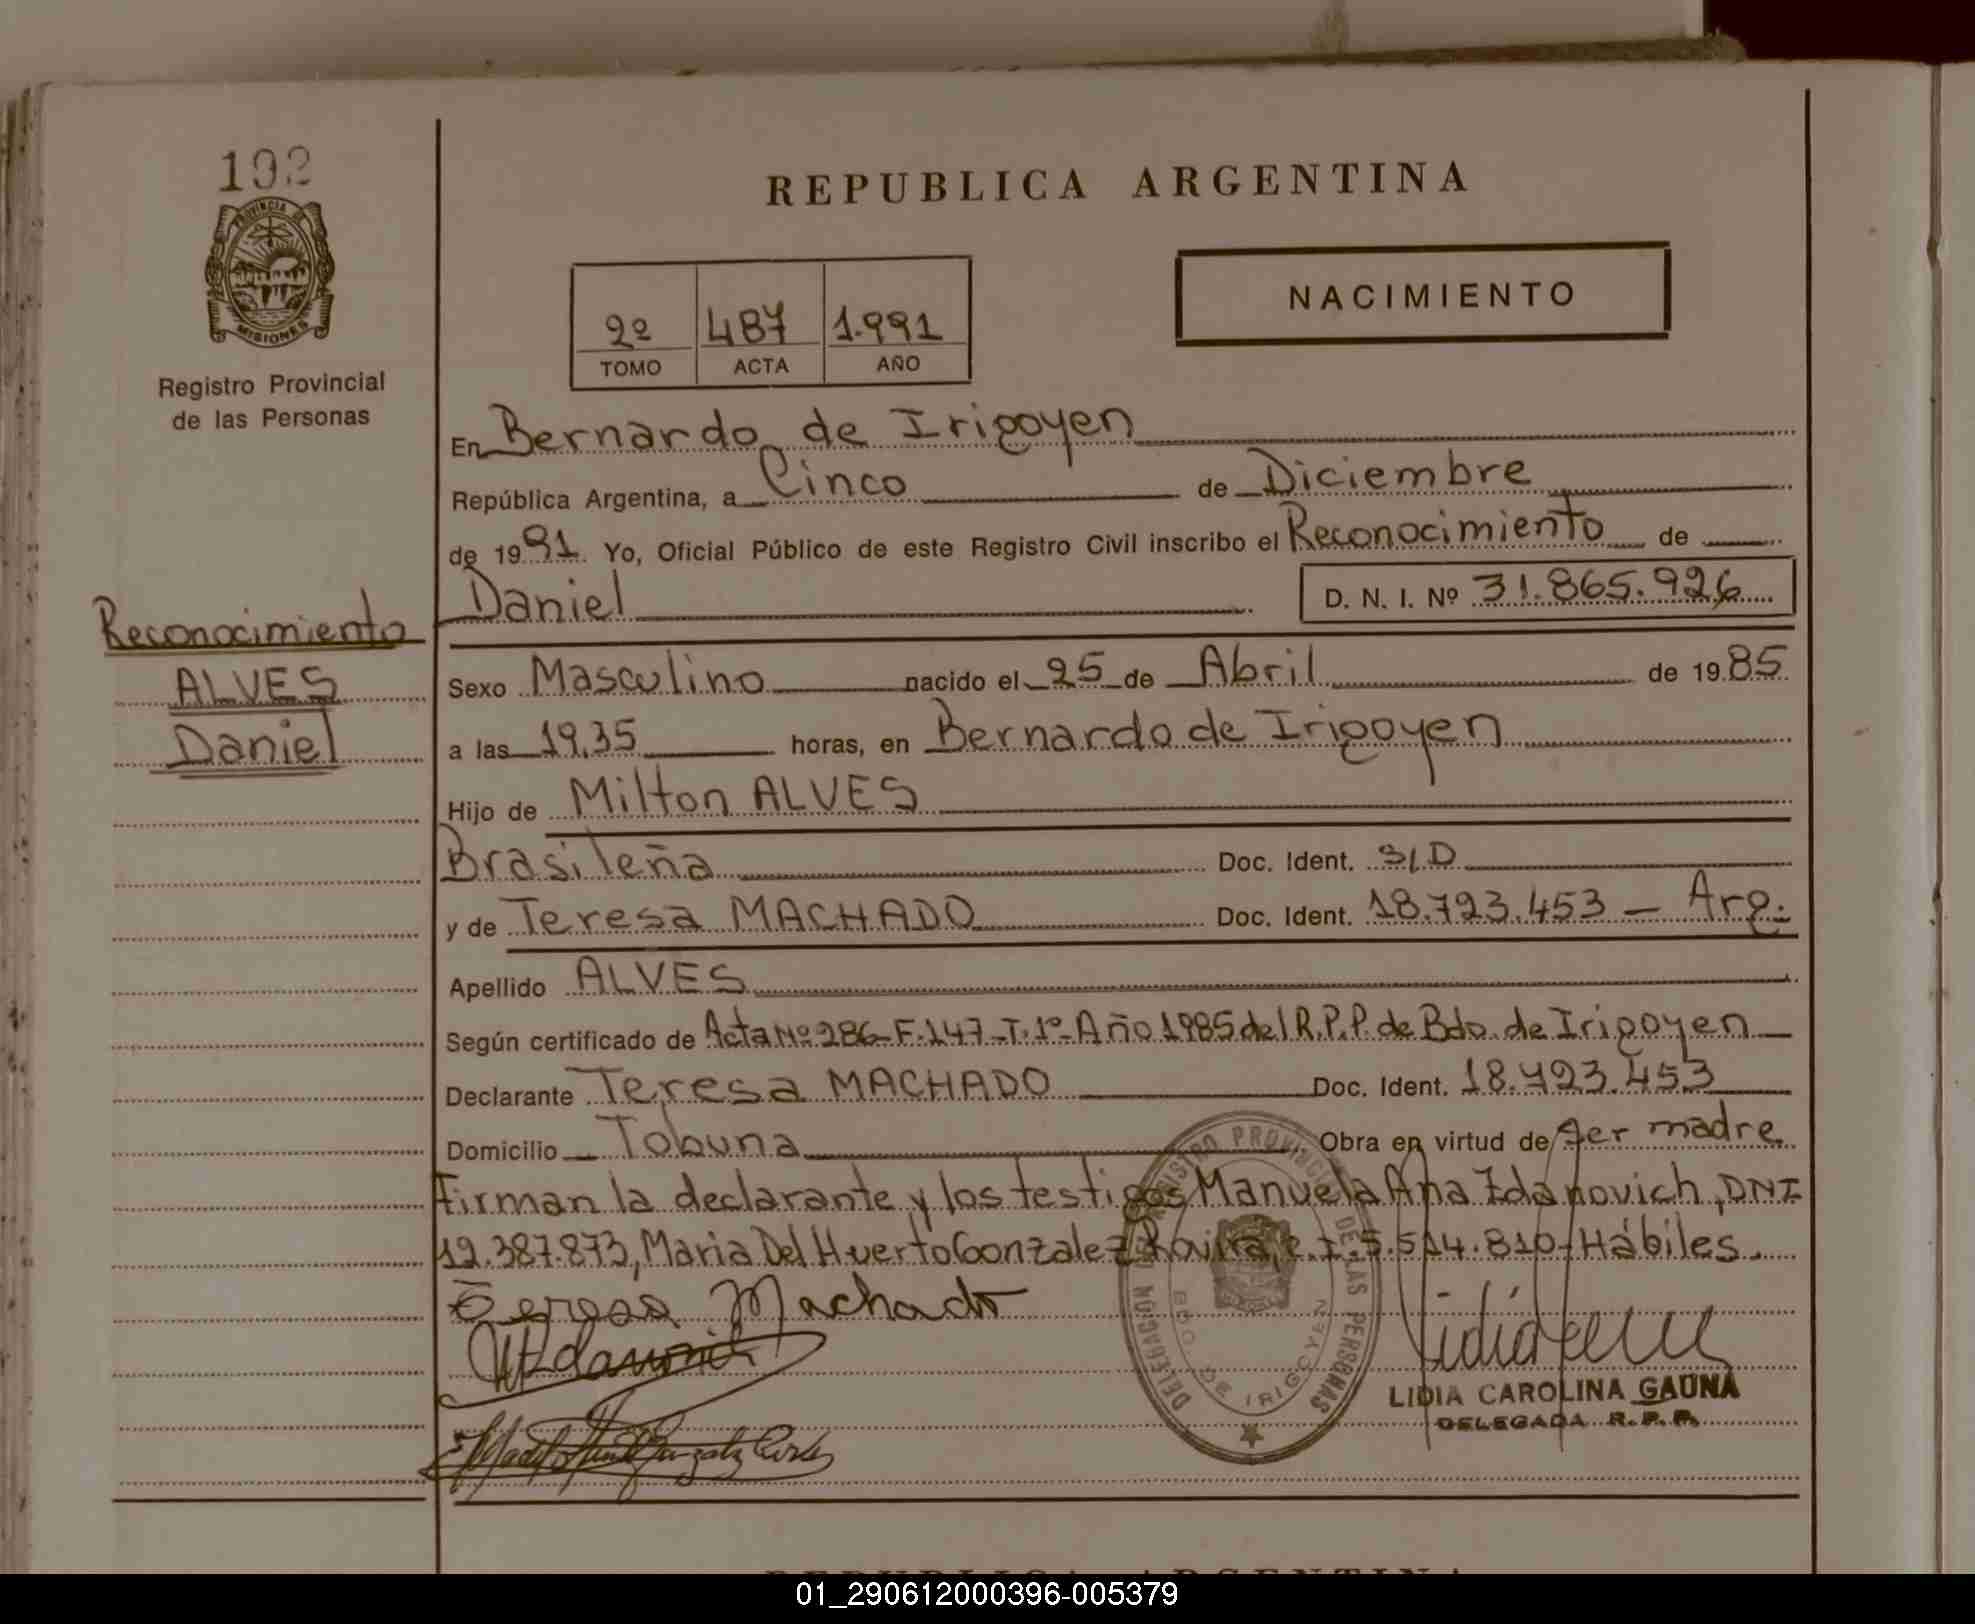 192
PROVINCIA DE
MISIONES
Registro Provincial
de las Personas
REPUBLICA ARGENTINA
2º 487 1.991
TOMO ACTA AÑO
NACIMIENTO
En Bernardo de Irigoyen
República Argentina, a Cinco de Diciembre
de 1991. Yo, Oficial Público de este Registro Civil inscribo el Reconocimiento de
Daniel D. N. I. Nº 31.865.926
Reconocimiento
ALVES
Daniel
Sexo Masculino nacido el 25 de Abril de 1985
a las 19,35 horas, en Bernardo de Irigoyen
Hijo de Milton ALVES
Brasileña Doc. Ident. S/D
y de Teresa MACHADO Doc. Ident. 18.723.453 - Arg.
Apellido ALVES
Según certificado de Acta Nº 286-F.147-T.1º-Año 1985 del R.P.P. de Bdo. de Irigoyen
Declarante Teresa MACHADO Doc. Ident. 18.723.453
Domicilio Tobuna Obra en virtud de ser madre
Firman la declarante y los testigos Manuela Ana Zdanovich, DNI
12.387.873, Maria Del Huerto Gonzalez Rovira, C.I. 5.514.810 - Hábiles.
Teresa Machado
DELEGACION REGISTRO PROVINCIAL DE LAS PERSONAS
BDO. DE IRIGOYEN
LIDIA CAROLINA GAUNA
DELEGADA R. P. P.
REPUBLICA ARGENTINA
01_290612000396-005379